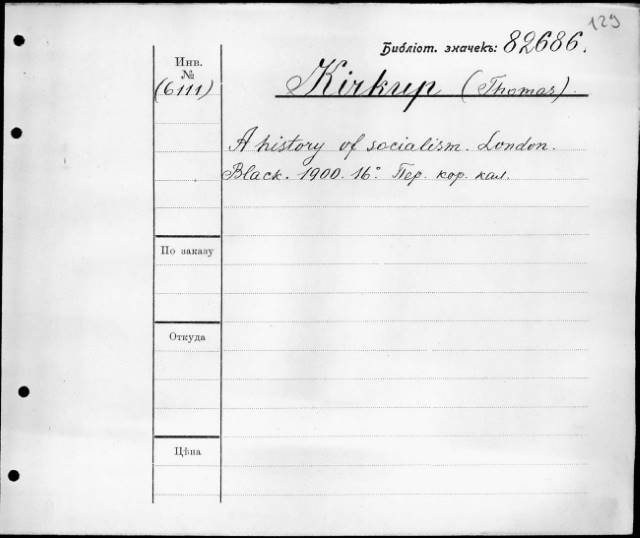 129
Библіот. значекъ: 82686.
Инв.
№
(6111)
Kirkup (Thomas).
A history of socialism. London.
Black. 1900. 16°. Пер. кор. кал.
По заказу
Откуда
Цѣна